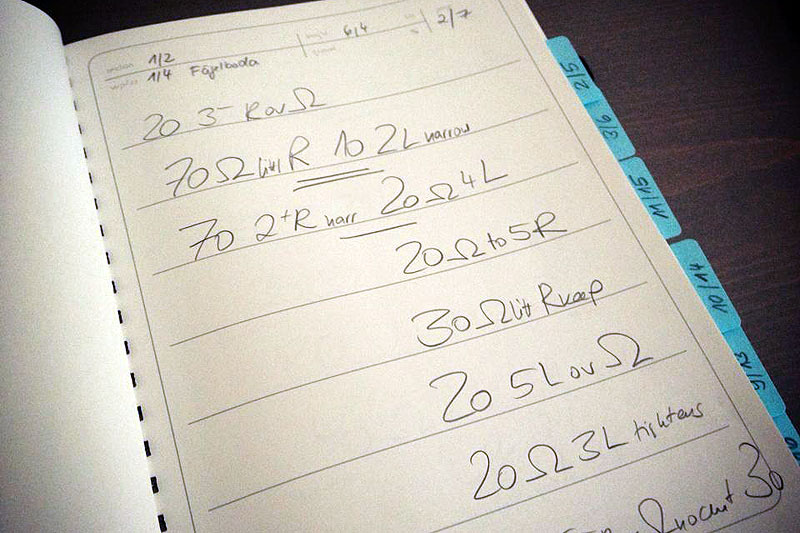 1/2 6/4 2/7
1/4 Fäjelboda
20 3⁻ R ov Ω
70 Ω litl R 10 2L narrow
70 2⁺R narr 20 Ω 4 L
20 Ω to 5R
30 Ω litt R keep
20 5 L ov Ω
20 Ω 3 L tishtens
Ω nocut 30
2/5
3/6
11/15
10/14
9/13